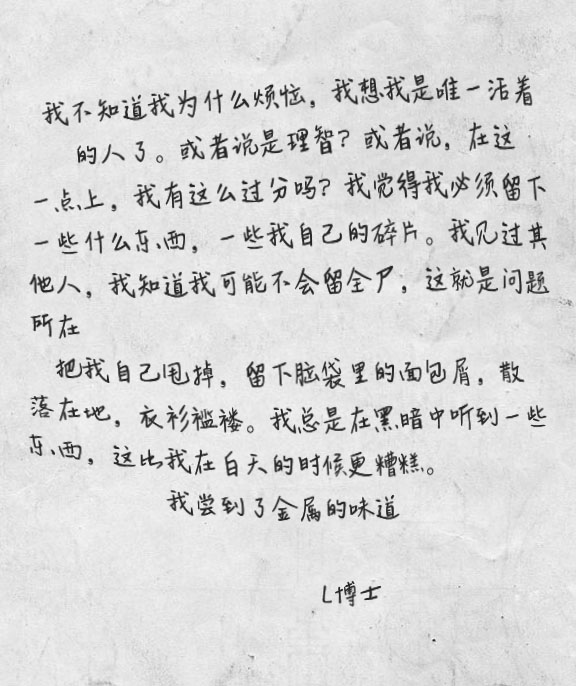 我不知道我为什么烦恼，我想我是唯一活着
的人了。或者说是理智？或者说，在这
一点上，我有这么过分吗？我觉得我必须留下
一些什么东西，一些我自己的碎片。我见过其
他人，我知道我可能不会留全尸，这就是问题
所在
把我自己甩掉，留下脑袋里的面包屑，散
落在地，衣衫褴褛。我总是在黑暗中听到一些
东西，这比我在白天的时候更糟糕。
我尝到了金属的味道
L博士